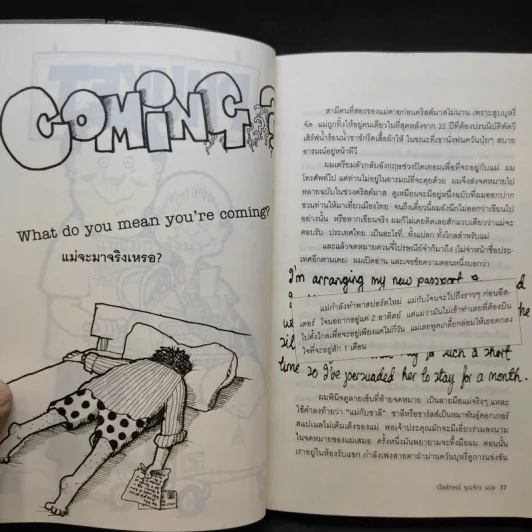 COMING
What do you mean you're coming?
แม่จะมาจริงเหรอ?
สามีคนที่สองของแม่ตายก่อนคริสต์มาสไม่นาน เพราะสูบบุหรี่
จัด แม่ถูกทิ้งให้อยู่คนเดียวในที่สุดหลังจาก 22 ปีที่ต้องปรนนิบัติพัดวี
เสิร์ฟน้ำร้อนน้ำชาซักรีดเสื้อผ้าให้ ในขณะที่เขานั่งพ่นควันปุ๋ยๆ สบาย
อารมณ์อยู่หน้าทีวี
ผมเตรียมตัวกลับอังกฤษช่วงปิดเทอมเพื่อที่จะอยู่กับแม่ ผม
โทรศัพท์ไป แต่ท่านไม่อยู่ในอารมณ์ที่จะคุยด้วย ผมจึงส่งจดหมายไป
หลายฉบับในช่วงคริสต์มาส ดูเหมือนจะมีอยู่หนึ่งฉบับที่ผมออกปาก
ชวนท่านให้มาเที่ยวเมืองไทย จนถึงเดี๋ยวนี้ผมยังนึกไม่ออกว่าเขียนไป
อย่างนั้น หรือหากเขียนจริง ผมก็ไม่เคยคิดเลยสักแวบเดียวว่าแม่จะ
ตอบรับ ประเทศไทย...เป็นอะไรที่...ทั้งแปลก ทั้งไกลสำหรับแม่
และแล้วจดหมายด่วนจี๋ไปรษณีย์จ๋าก็มาถึง (ไม่จ่าหน้าชื่อประ-
เทศอีกตามเคย) ผมเปิดอ่าน และเจอข้อความตอนหนึ่งบอกว่า
I'm arranging my new passport &
แม่กำลังทำพาสปอร์ตใหม่ แม่กับใจนจะไปถึงราวๆ ก่อนอีส-
เตอร์ ใจนอยากอยู่แค่ 2 อาทิตย์ แต่แม่ว่ามันไม่เข้าท่าเลยที่ต้องบิน
ไปตั้งไกลเพื่อจะอยู่เพียงแค่ไม่กี่วัน แม่เลยพูดเกลี้ยกล่อมให้เธอตกลง
ใจที่จะอยู่สัก 1 เดือน
such a short
time so I've persuaded her to stay for a month.
ผมพินิจดูลายเซ็นที่ท้ายจดหมาย เป็นลายมือแม่จริงๆ แหละ
ใช้คำลงท้ายว่า "แม่กับชาลี" ชาลีหรือชาร์ลส์เป็นหมาพันธุ์คอกเกอร์
สแปเนลไม่เต็มเต็งของแม่ พ่อเจ้าประคุณมักจะมีเอี่ยวร่วมลงนาม
ในจดหมายของแม่เสมอ ครั้งหนึ่งมันพยายามจะทึ้งมือผม ตอนนั้น
เราอยู่ในห้องรับแขก กำลังเพ่งสายตาฝ่าม่านควันบุหรี่ดูการแข่งขัน
แปล 37